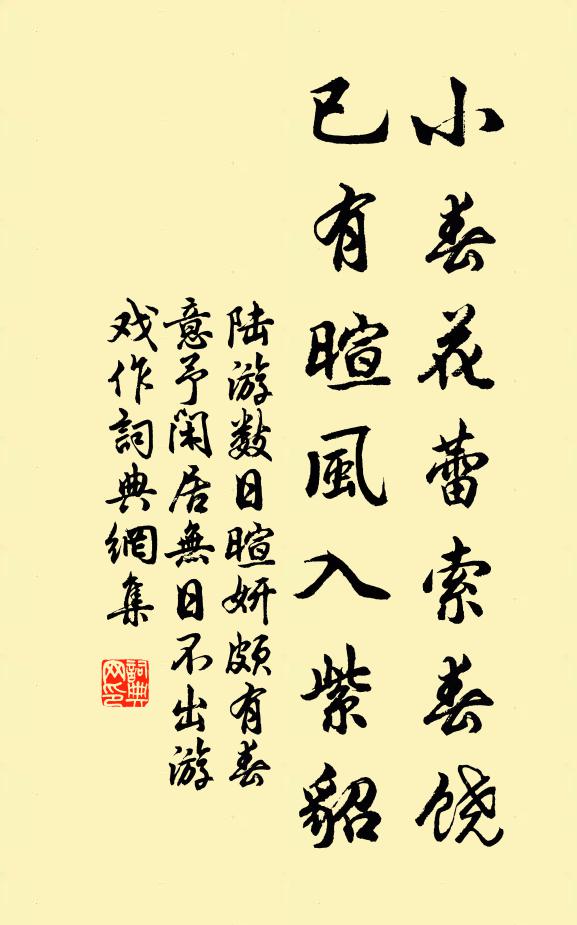 小春花蕾索春饶
已有暄風入紫貂
陆游数日暄妍颇有春
意予闲居無日不出游
戏作詞典網集
詞典网印